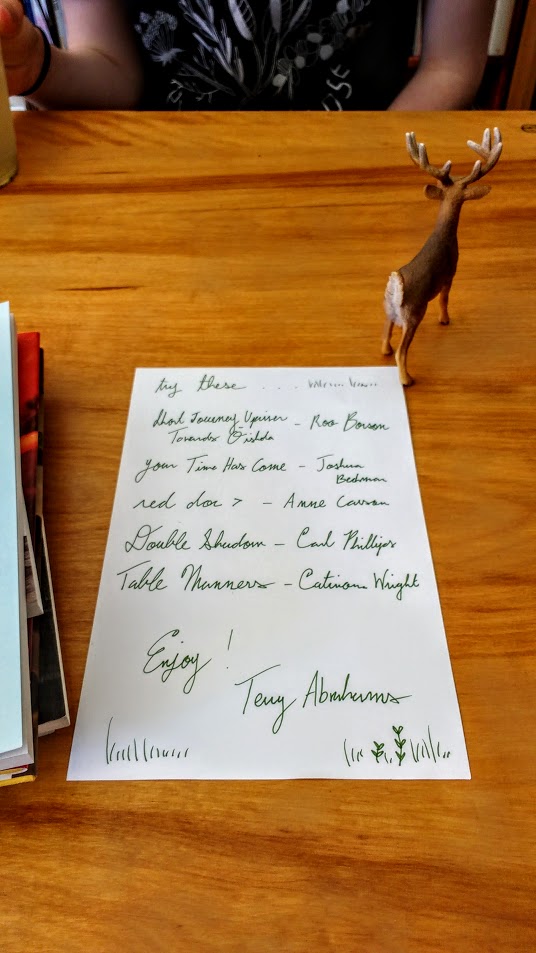 try these . . .
Short Journey Upriver - Roo Borson
Towards Ōishida
Your Time Has Come - Joshua
Beckman
red doc > - Anne Carson
Double Shadow - Carl Phillips
Table Manners - Catriona Wright
Enjoy!
Terry Abrahams
USE